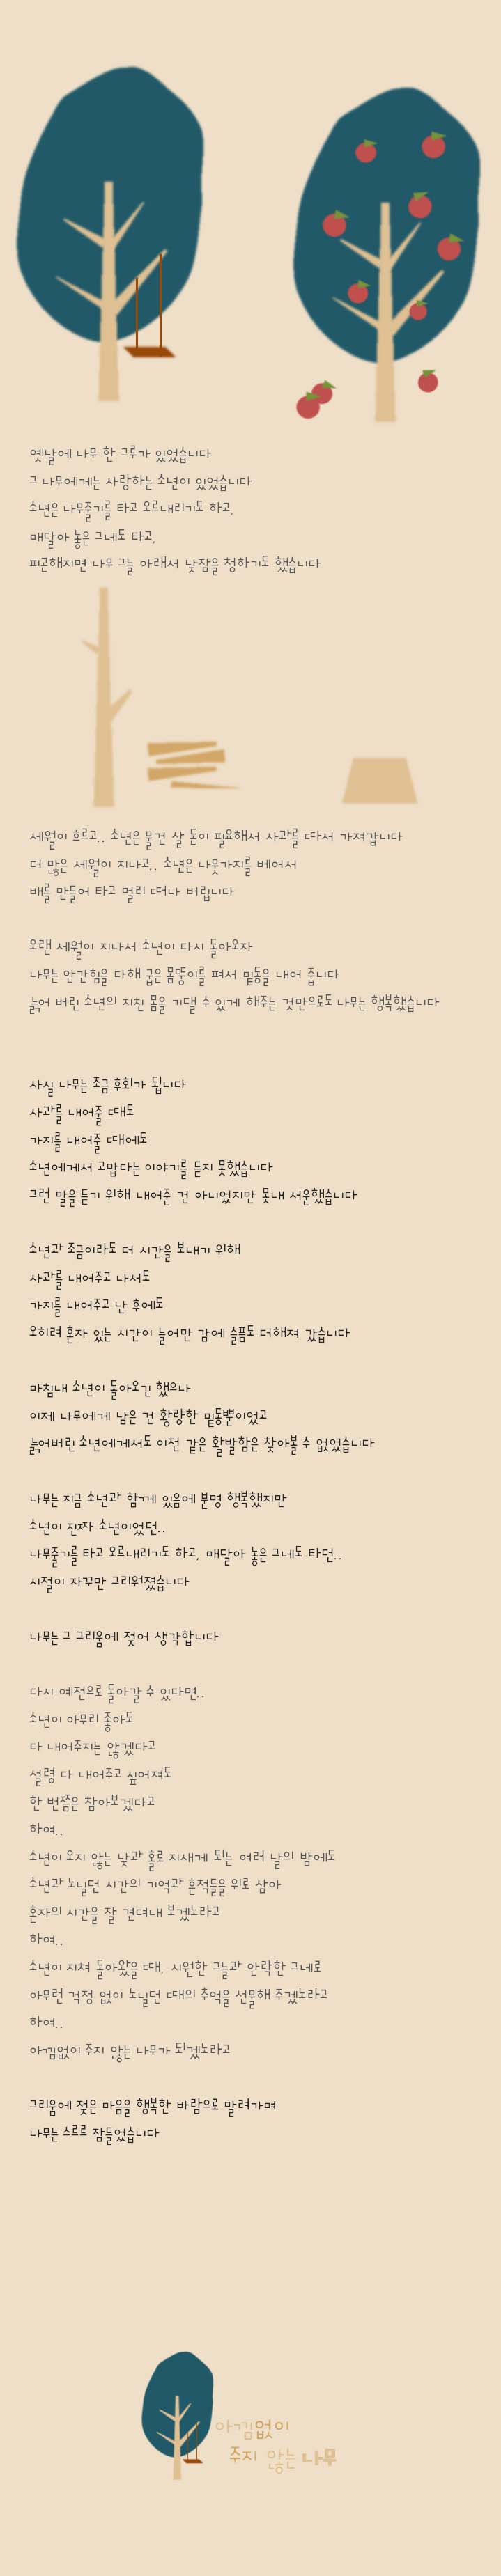 옛날에 나무 한 그루가 있었습니다
그 나무에게는 사랑하는 소년이 있었습니다
소년은 나무줄기를 타고 오르내리기도 하고,
매달아 놓은 그네도 타고,
피곤해지면 나무 그늘 아래서 낮잠을 청하기도 했습니다
세월이 흐르고.. 소년은 물건 살 돈이 필요해서 사과를 따서 가져갑니다
더 많은 세월이 지나고.. 소년은 나뭇가지를 베어서
배를 만들어 타고 멀리 떠나 버립니다
오랜 세월이 지나서 소년이 다시 돌아오자
나무는 안간힘을 다해 굽은 몸뚱이를 펴서 밑동을 내어 줍니다
늙어 버린 소년의 지친 몸을 기댈 수 있게 해주는 것만으로도 나무는 행복했습니다
사실 나무는 조금 후회가 됩니다
사과를 내어줄 때도
가지를 내어줄 때에도
소년에게서 고맙다는 이야기를 듣지 못했습니다
그런 말을 듣기 위해 내어준 건 아니었지만 못내 서운했습니다
소년과 조금이라도 더 시간을 보내기 위해
사과를 내어주고 나서도
가지를 내어주고 난 후에도
오히려 혼자 있는 시간이 늘어만 감에 슬픔도 더해져 갔습니다
마침내 소년이 돌아오긴 했으나
이제 나무에게 남은 건 황량한 밑동뿐이었고
늙어버린 소년에게서도 이전 같은 활발함은 찾아볼 수 없었습니다
나무는 지금 소년과 함께 있음에 분명 행복했지만
소년이 진짜 소년이었던..
나무줄기를 타고 오르내리기도 하고, 매달아 놓은 그네도 타던..
시절이 자꾸만 그리워졌습니다
나무는 그 그리움에 젖어 생각합니다
다시 예전으로 돌아갈 수 있다면..
소년이 아무리 좋아도
다 내어주지는 않겠다고
설령 다 내어주고 싶어져도
한 번쯤은 참아보겠다고
하여..
소년이 오지 않는 낮과 홀로 지새게 되는 여러 날의 밤에도
소년과 노닐던 시간의 기억과 흔적들을 위로 삼아
혼자의 시간을 잘 견뎌내 보겠노라고
하여..
소년이 지쳐 돌아왔을 때, 시원한 그늘과 안락한 그네로
아무런 걱정 없이 노닐던 때의 추억을 선물해 주겠노라고
하여..
아낌없이 주지 않는 나무가 되겠노라고
그리움에 젖은 마음을 행복한 바람으로 말려가며
나무는 스르르 잠들었습니다
아낌없이
주지 않는 나무